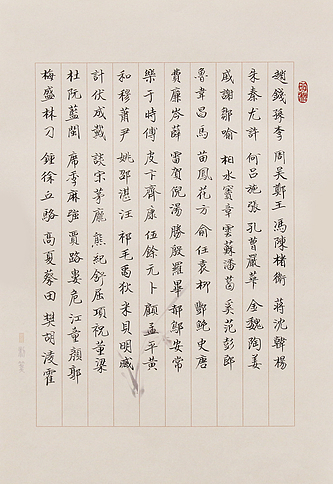 趙錢孫李 周吳鄭王 馮陳褚衛 蔣沈韓楊
朱秦尤許 何呂施張 孔曹嚴華 金魏陶姜
戚謝鄒喻 柏水竇章 雲蘇潘葛 奚范彭郎
魯韋昌馬 苗鳳花方 俞任袁柳 酆鮑史唐
費廉岑薛 雷賀倪湯 滕殷羅畢 郝鄔安常
樂于時傅 皮卞齊康 伍餘元卜 顧孟平黃
和穆蕭尹 姚邵湛汪 祁毛禹狄 米貝明臧
計伏成戴 談宋茅龐 熊紀舒屈 項祝董梁
杜阮藍閔 席季麻強 賈路婁危 江童顏郭
梅盛林刁 鍾徐丘駱 高夏蔡田 樊胡凌霍